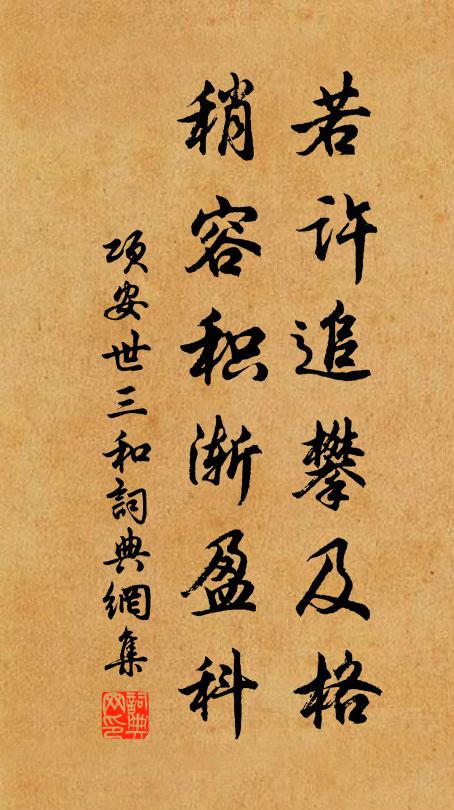 若许追攀及格
稍容积渐盈科
项安世三和詞典網集
詞典网印